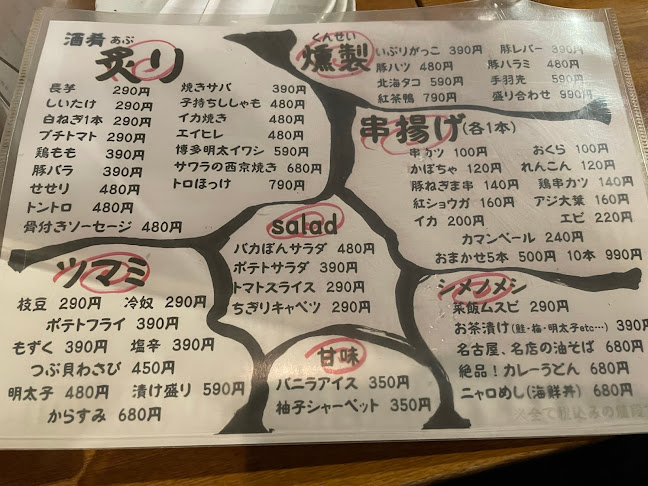 酒肴 あぶ
炙り
長芋 290円
しいたけ 290円
白ねぎ1本 290円
プチトマト 290円
鶏もも 390円
豚バラ 390円
せせり 480円
トントロ 480円
骨付きソーセージ 480円
焼きサバ 390円
子持ちししゃも 480円
イカ焼き 480円
エイヒレ 480円
博多明太イワシ 590円
サワラの西京焼き 680円
トロほっけ 790円
くんせい
燻製
いぶりがっこ 390円
豚ハツ 480円
北海タコ 590円
紅茶鴨 790円
豚レバー 390円
豚ハラミ 480円
手羽先 590円
盛り合わせ 990円
串揚げ(各1本)
串カツ 100円 おくら 100円
かぼちゃ 120円 れんこん 120円
豚ねぎま串 140円 鶏串カツ 140円
紅ショウガ 160円 アジ大葉 160円
イカ 200円 エビ 220円
カマンベール 240円
おまかせ5本 500円 10本 990円
salad
バカぼんサラダ 480円
ポテトサラダ 390円
トマトスライス 290円
ちぎりキャベツ 290円
ツマミ
枝豆 290円 冷奴 290円
ポテトフライ 390円
もずく 390円 塩辛 390円
つぶ貝わさび 450円
明太子 480円 漬け盛り 590円
からすみ 680円
甘味
バニラアイス 350円
柚子シャーベット 350円
シメノメシ
菜飯ムスビ 290円
お茶漬け(鮭・梅・明太子etc…) 390円
名古屋、名店の油そば 680円
絶品！カレーうどん 680円
ニャロめし(海鮮丼) 680円
※全て税込みの値段